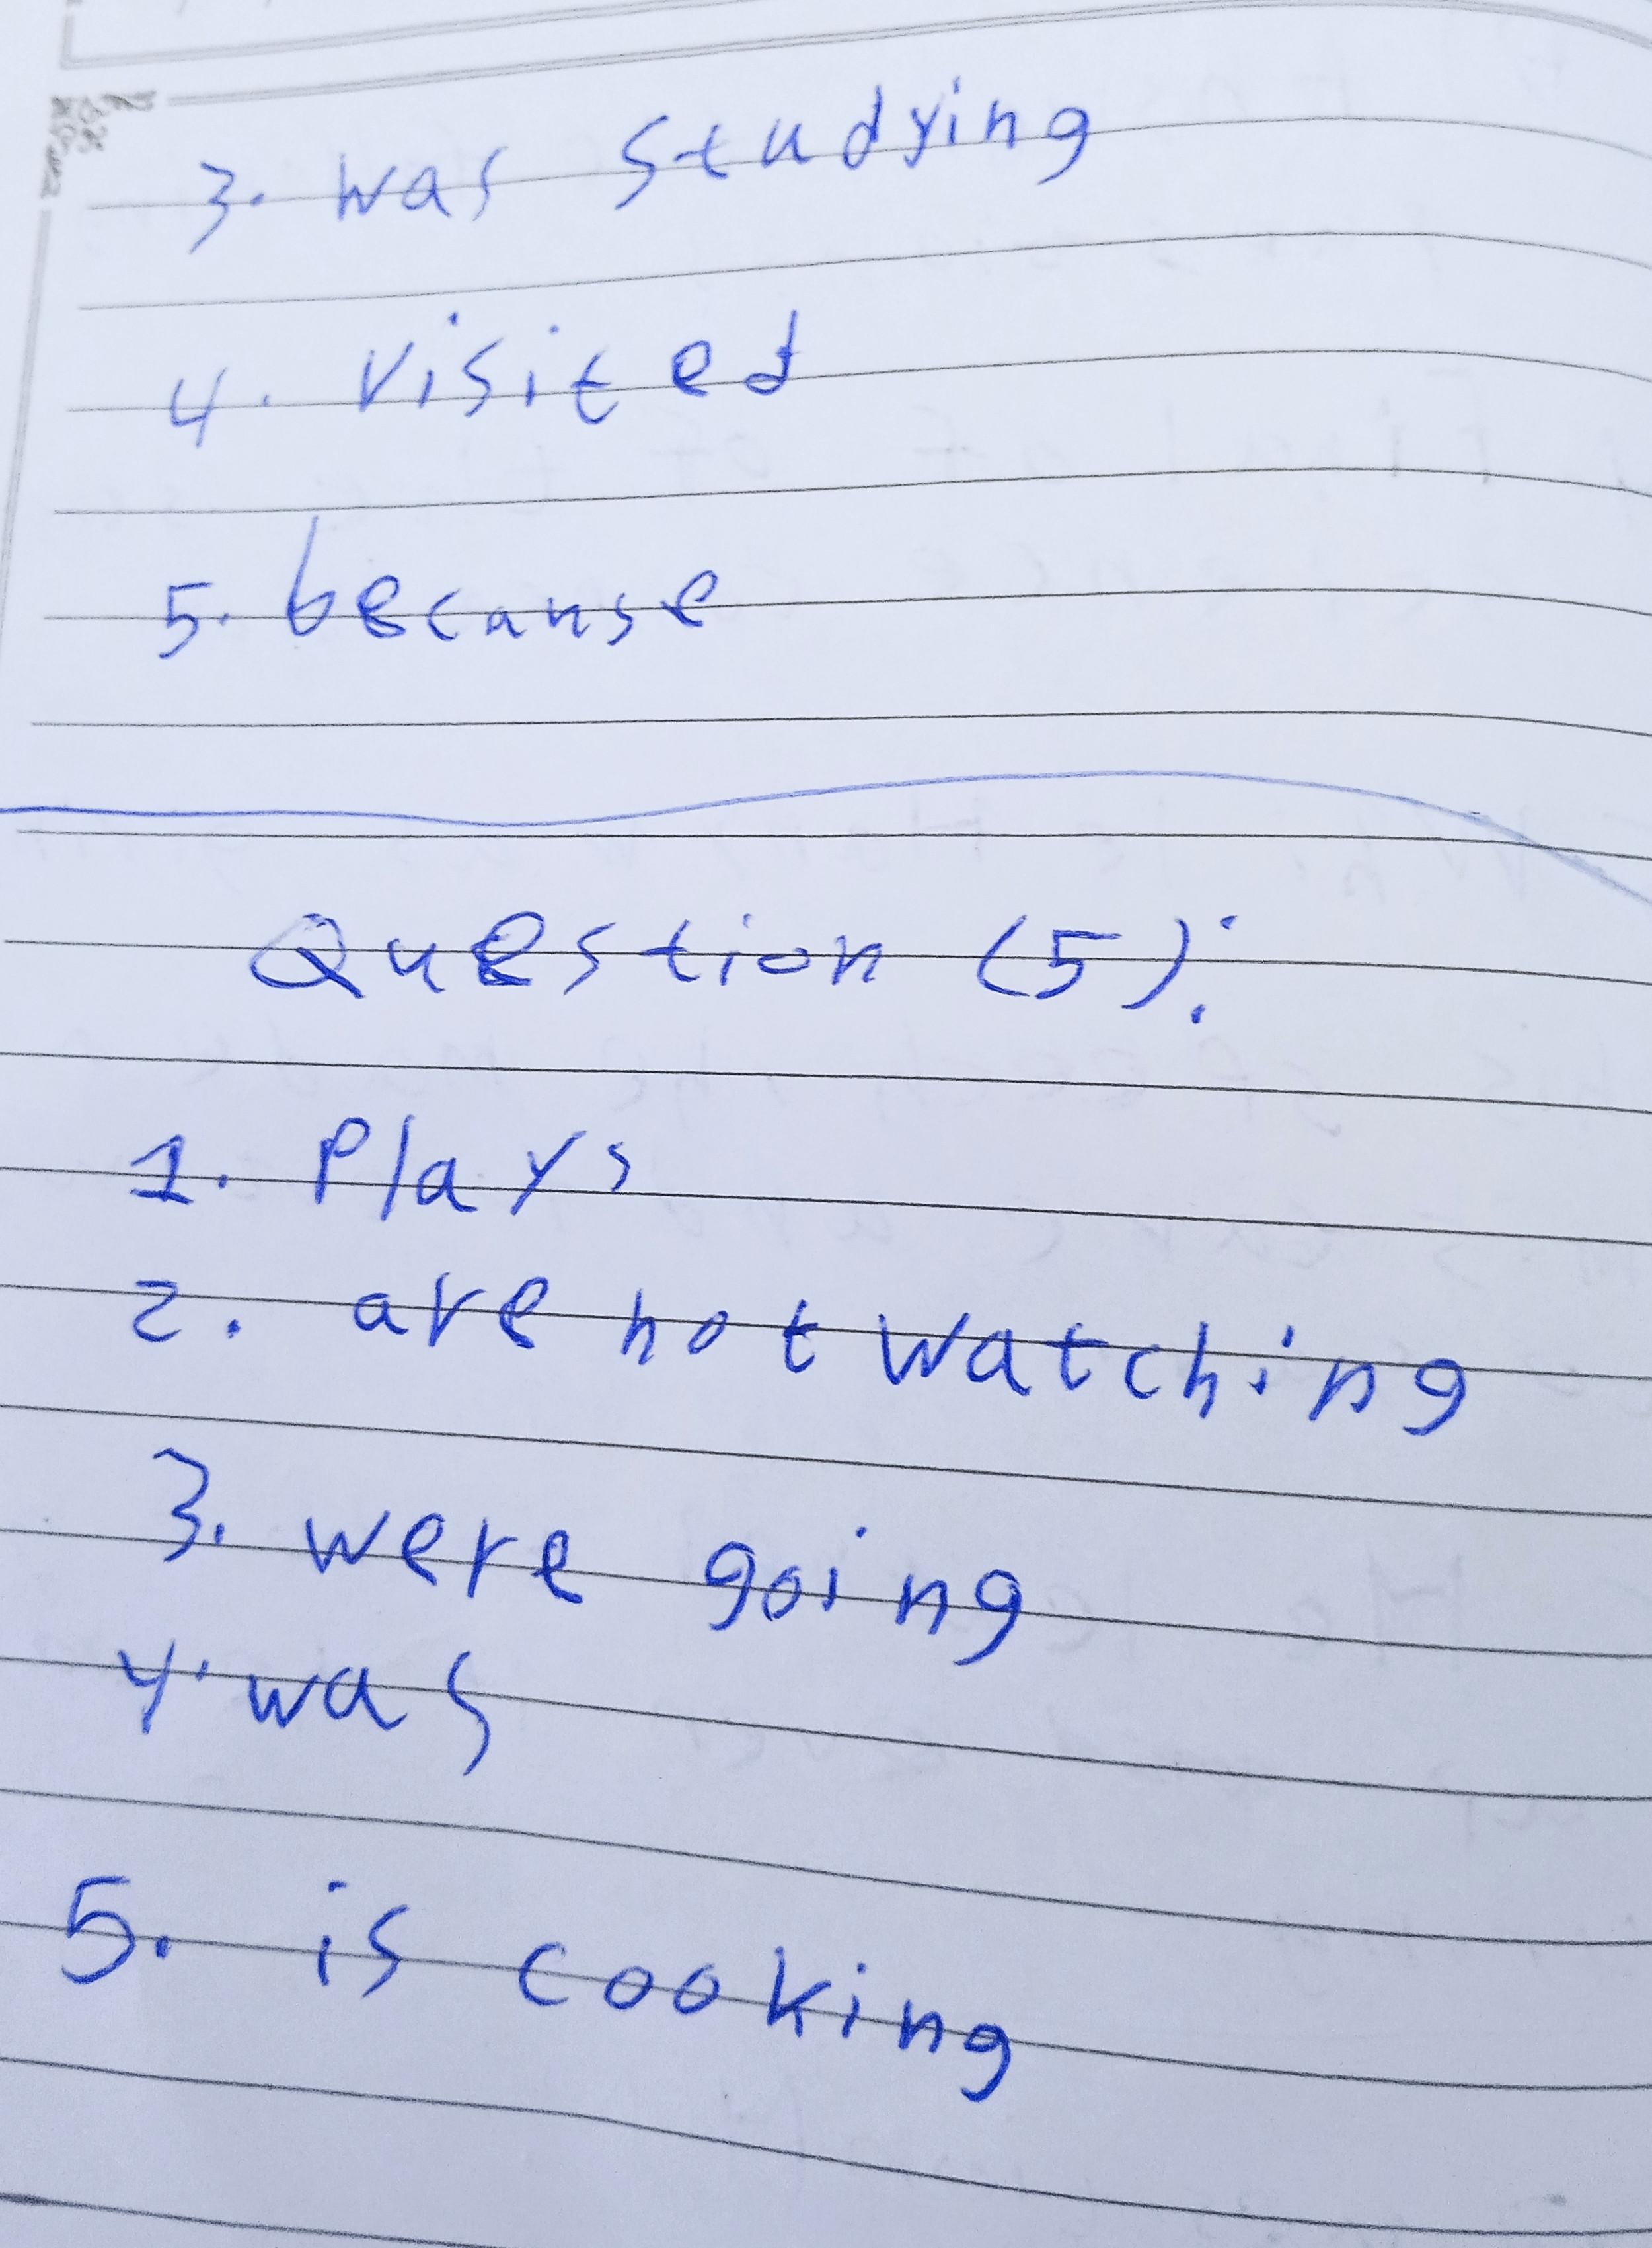 3. was studying
4. visited
5. because
Question (5):
1. Plays
2. are not watching
3. were going
4. was
5. is cooking